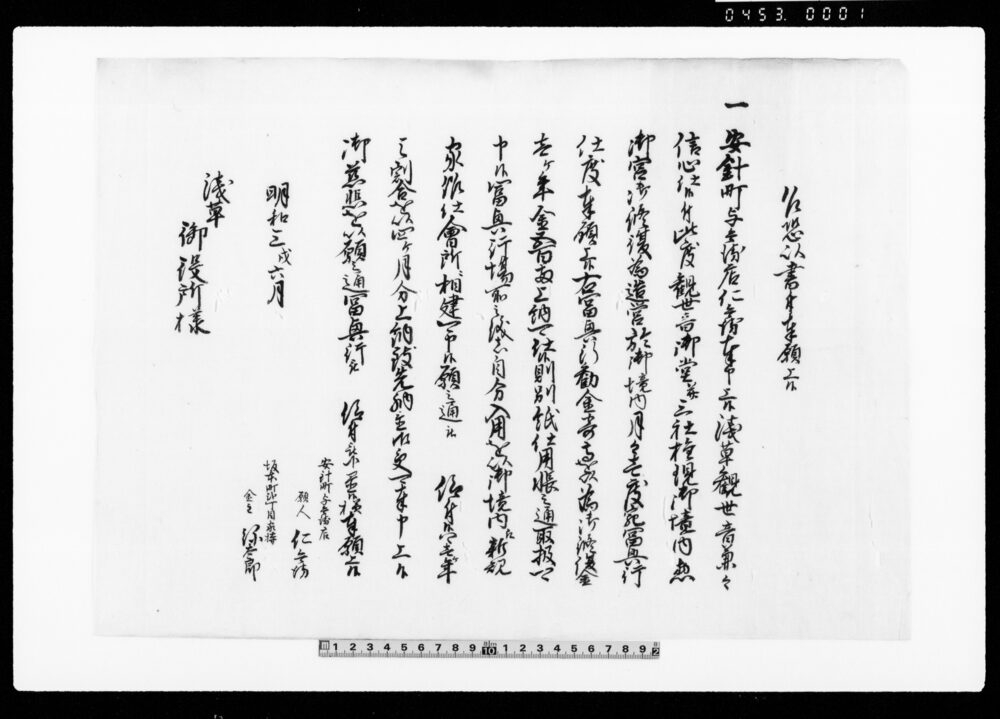 0453. 0001
乍恐以書付奉願上候
一 安針町与兵衛店仁兵衛奉申上候浅草観世音兼々
信心仕候付此度観世音御堂并三社権現御境内惣
御宮御修復為造営於御境内月々壱度宛富興行
仕度奉願上候右富興行勧金寄高之為御修復金
壱ヶ年金五百両上納可仕候則別紙仕用帳之通取扱可
申候富興行場所之儀者自分入用を以御境内江新規
家作仕會所相建可申候願之通被 仰付候ハヽ壱年
之割合を以四ヶ月分上納致先納金相定可奉申上候
御慈悲を以願之通富興行 仰付被下置候様奉願上候
安針町与兵衛店
願人 仁兵衛
坂本町弐丁目家持
金主 弥太郎
明和三戌六月
浅草
御役所様
1 2 3 4 5 6 7 8 9 10 1 2 3 4 5 6 7 8 9 2